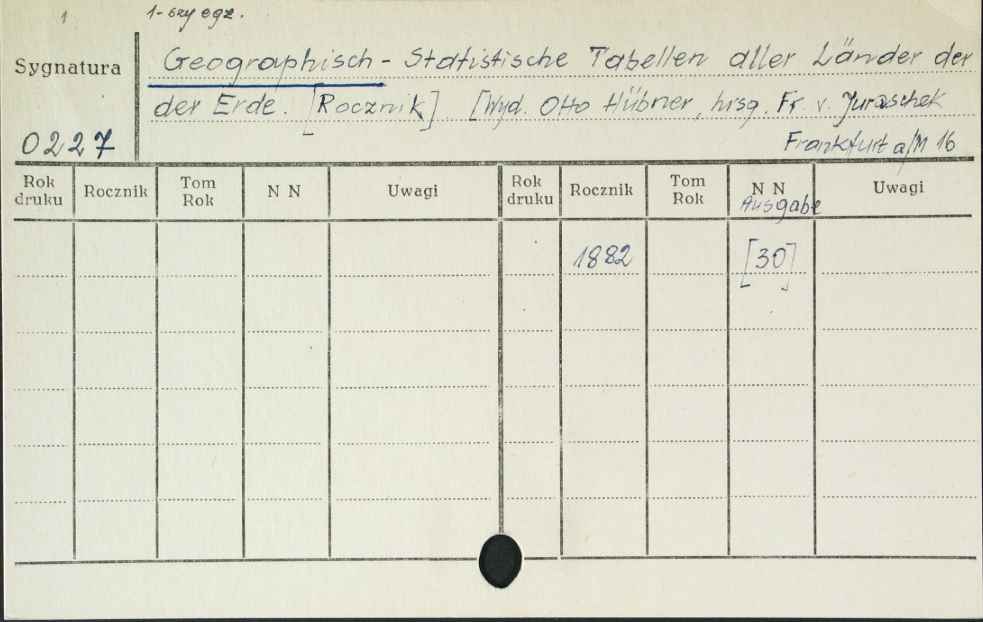 1
1-szy egz.
Sygnatura
0227
Geographisch - Statistische Tabellen aller Länder der
der Erde. [Rocznik] [Wyd. Otto Hübner, hrsg. Fr. v. Juraschek
Frankfurt a/M 16
Rok druku Rocznik Tom Rok N N Uwagi Rok druku Rocznik Tom Rok N N Uwagi
Ausgabe
1882 [30]